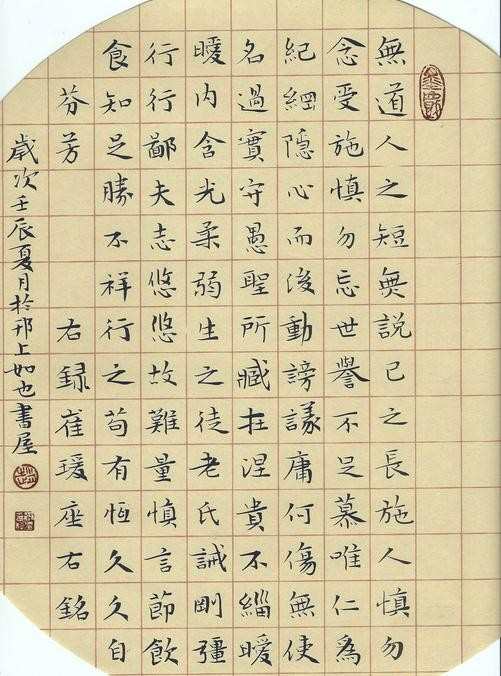 無道人之短無説己之長施人慎勿
念受施慎勿忘世譽不足慕唯仁為
紀綱隱心而後動謗議庸何傷無使
名過實守愚聖所臧在涅貴不緇曖
曖內含光柔弱生之徒老氏誡剛彊
行行鄙夫志悠悠故難量慎言節飲
食知足勝不祥行之苟有恆久久自
芬芳 右録崔瑗座右銘
歲次壬辰夏月於邗上如也書屋